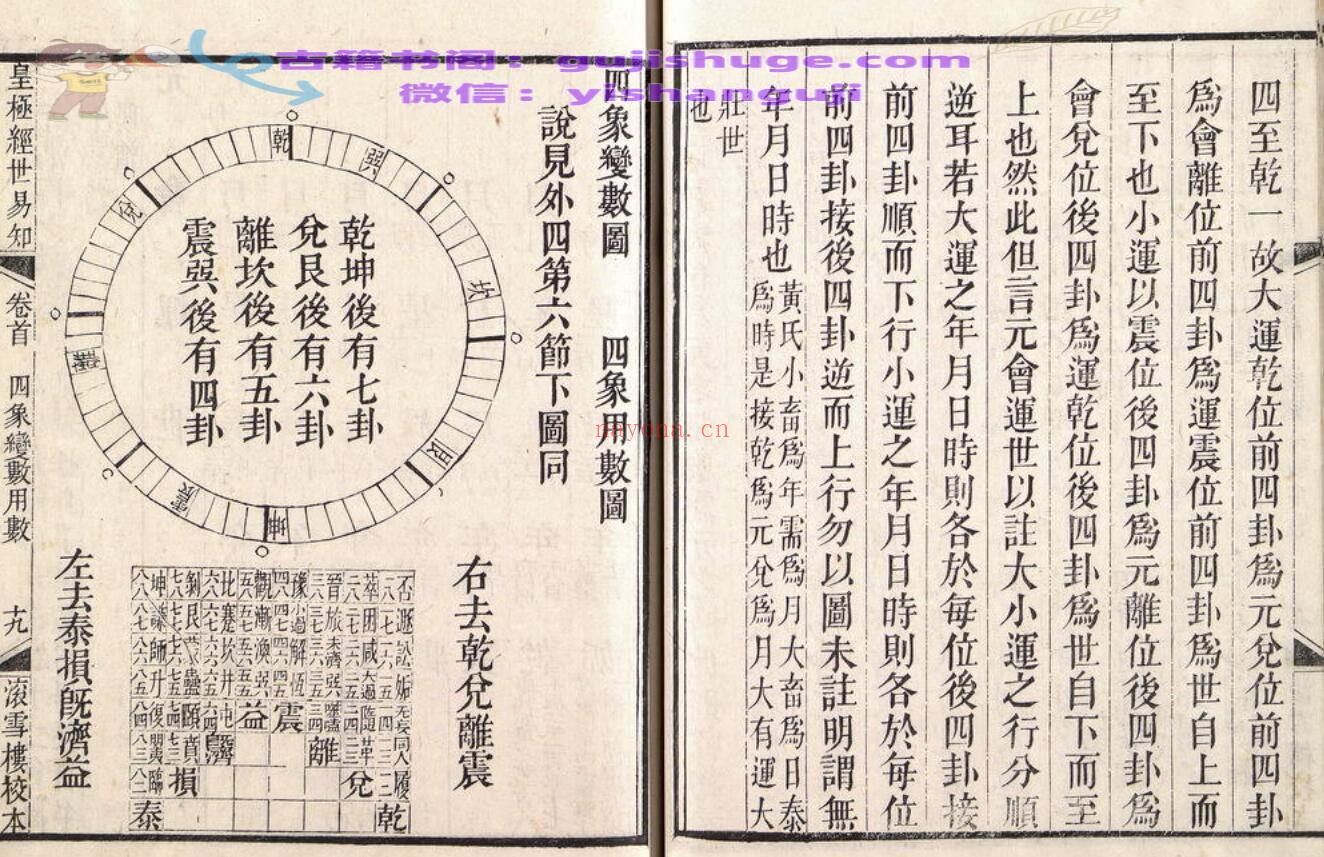 古籍书阁：gujishuge.com
微信：yishanguji
nayona.cn
四至乾一故大運乾位前四卦爲元兌位前四卦
爲會離位前四卦爲運震位前四卦爲世自上而
至下也小運以震位後四卦爲元離位後四卦爲
會兌位後四卦爲運乾位後四卦爲世自下而至
上也然此但言元會運世以註大小運之行分順
逆耳若大運之年月日時則各於每位後四卦接
前四卦順而下行小運之年月日時則各於每位
前四卦接後四卦逆而上行勿以圖未註明謂無
年月日時也
黃氏小畜爲年需爲月大畜爲日泰
爲時是接乾爲元兌爲月大有運大
壯世
也
四象變數圖 四象用數圖
說見外四第六節下圖同
乾
巽
坎
艮
坤
震
離
兌
乾坤後有七卦
兌艮後有六卦
離坎後有五卦
震巽後有四卦
右去乾兌離震
否遯訟姤无妄同人履乾
萃困咸大過隨革兌
晉旅未濟離
豫小過解恆震
觀漸渙巽益
比蹇坎井屯
剝艮蒙蠱頤賁損
坤謙師升復臨泰
左去泰損既濟益
皇極經世易知
卷首
四象變數用數
十九
滾雪樓校本